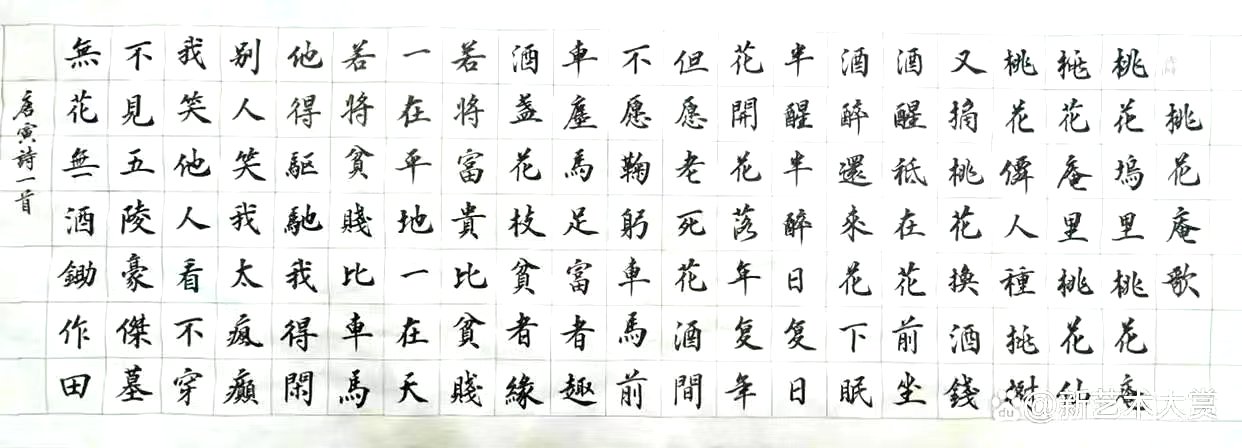 桃花庵歌
桃花塢里桃花庵
桃花庵里桃花仙
桃花僊人種桃樹
又摘桃花換酒錢
酒醒祗在花前坐
酒醉還來花下眠
半醒半醉日复日
花開花落年复年
但愿老死花酒間
不愿鞠躬車馬前
車塵馬足富者趣
酒盞花枝貧者緣
若將富貴比貧賤
一在平地一在天
若將貧賤比車馬
他得驅馳我得閑
別人笑我太瘋癲
我笑他人看不穿
不見五陵豪傑墓
無花無酒鋤作田
唐寅詩一首
du @新艺术大赏